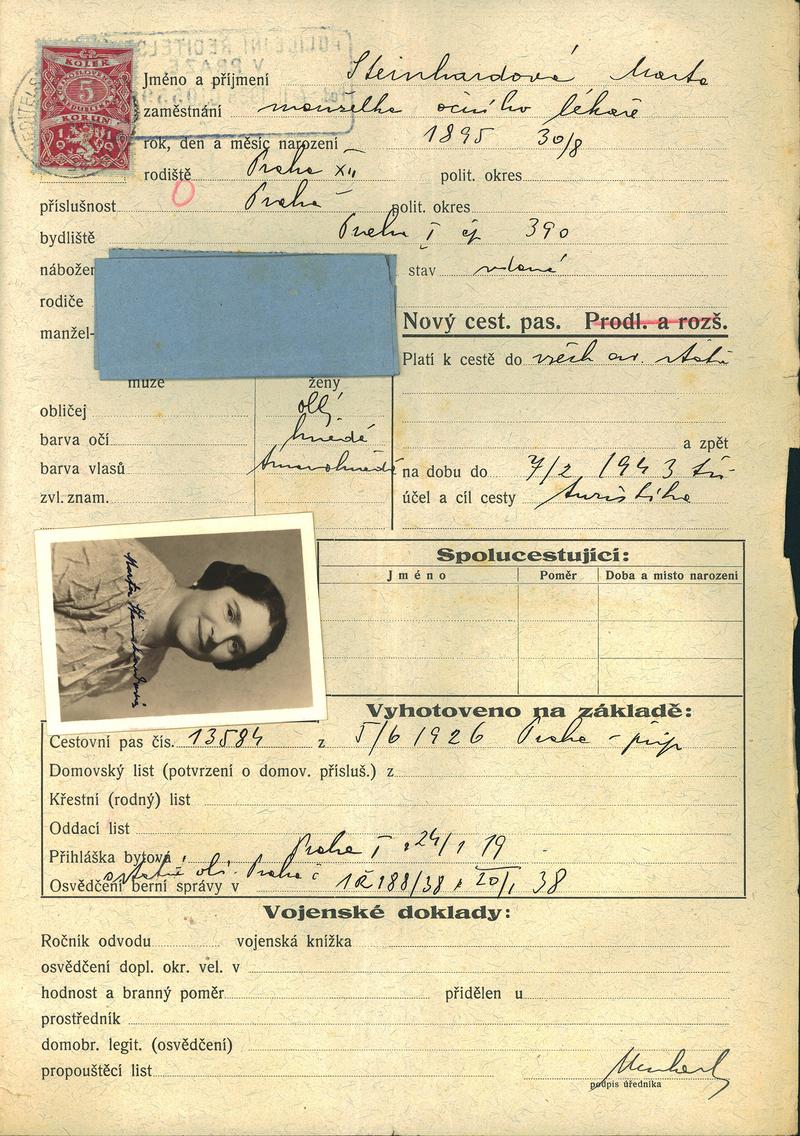 KOLEK
5
KORUN
1919
POLICEJNÍ ŘEDITELS
V PRAZE
Jméno a příjmení Steinhardová Marta
zaměstnání manželka očního lékaře
rok, den a měsíc narození 1895 30/8
rodiště Praha XII polit. okres
příslušnost Praha polit. okres
bydliště Praha I čp 390
nábožen stav vdaná
rodiče
manžel-
Nový cest. pas. Prodl. a rozš.
Platí k cestě do všech ev. států
muže ženy
obličej
barva očí hnědé
barva vlasů tmavohnědé
zvl. znam.
a zpět
na dobu do 7/2 1943
účel a cíl cesty turistika
Marta Steinhardová
Spolucestující:
Jméno Poměr Doba a místo narození
Vyhotoveno na základě:
Cestovní pas čís. 13584 z 5/6 1926 Praha
Domovský list (potvrzení o domov. přísluš.) z
Křestní (rodný) list
Oddací list
Přihláška bytová Praha I 24/1 19
Praha
Osvědčení berní správy v 188/38 20/I 38
Vojenské doklady:
Ročník odvodu vojenská knížka
osvědčení dopl. okr. vel. v
hodnost a branný poměr přidělen u
prostředník
domobr. legit. (osvědčení)
propouštěcí list
podpis úředníka